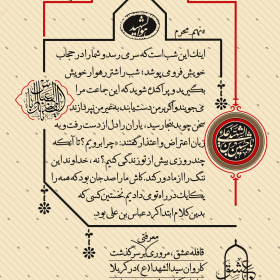 دهم محرم
اینک این شب است که سر می‌رسد و شما را در حجاب
خویش فرو می‌پوشد؛ شب را شتر رهوار خویش
بگیرید و پراکنده شوید که این جماعت مرا
می‌جویند و اگر بر من دست یابند، به غیر من نپردازند
سخن چو بدینجا رسید، یاران را دل از دست رفت و به
زبان اعتراض و اعتذار گفتند: «چرا برویم؟ تا آنکه
چند روزی بیش از تو زندگی کنیم؟ نه، خداوند این
ننگ را از ما دور کند. کاش ما را صد جان بود که همه را
یکایک در راه تو می‌دادیم. نخستین کسی که
بدین کلام ابتدا کرد عباس بن علی بود.
معرفی
قافله عشق، مروری بر سرگذشت
کاروان سیدالشهدا (ع) در کربلا